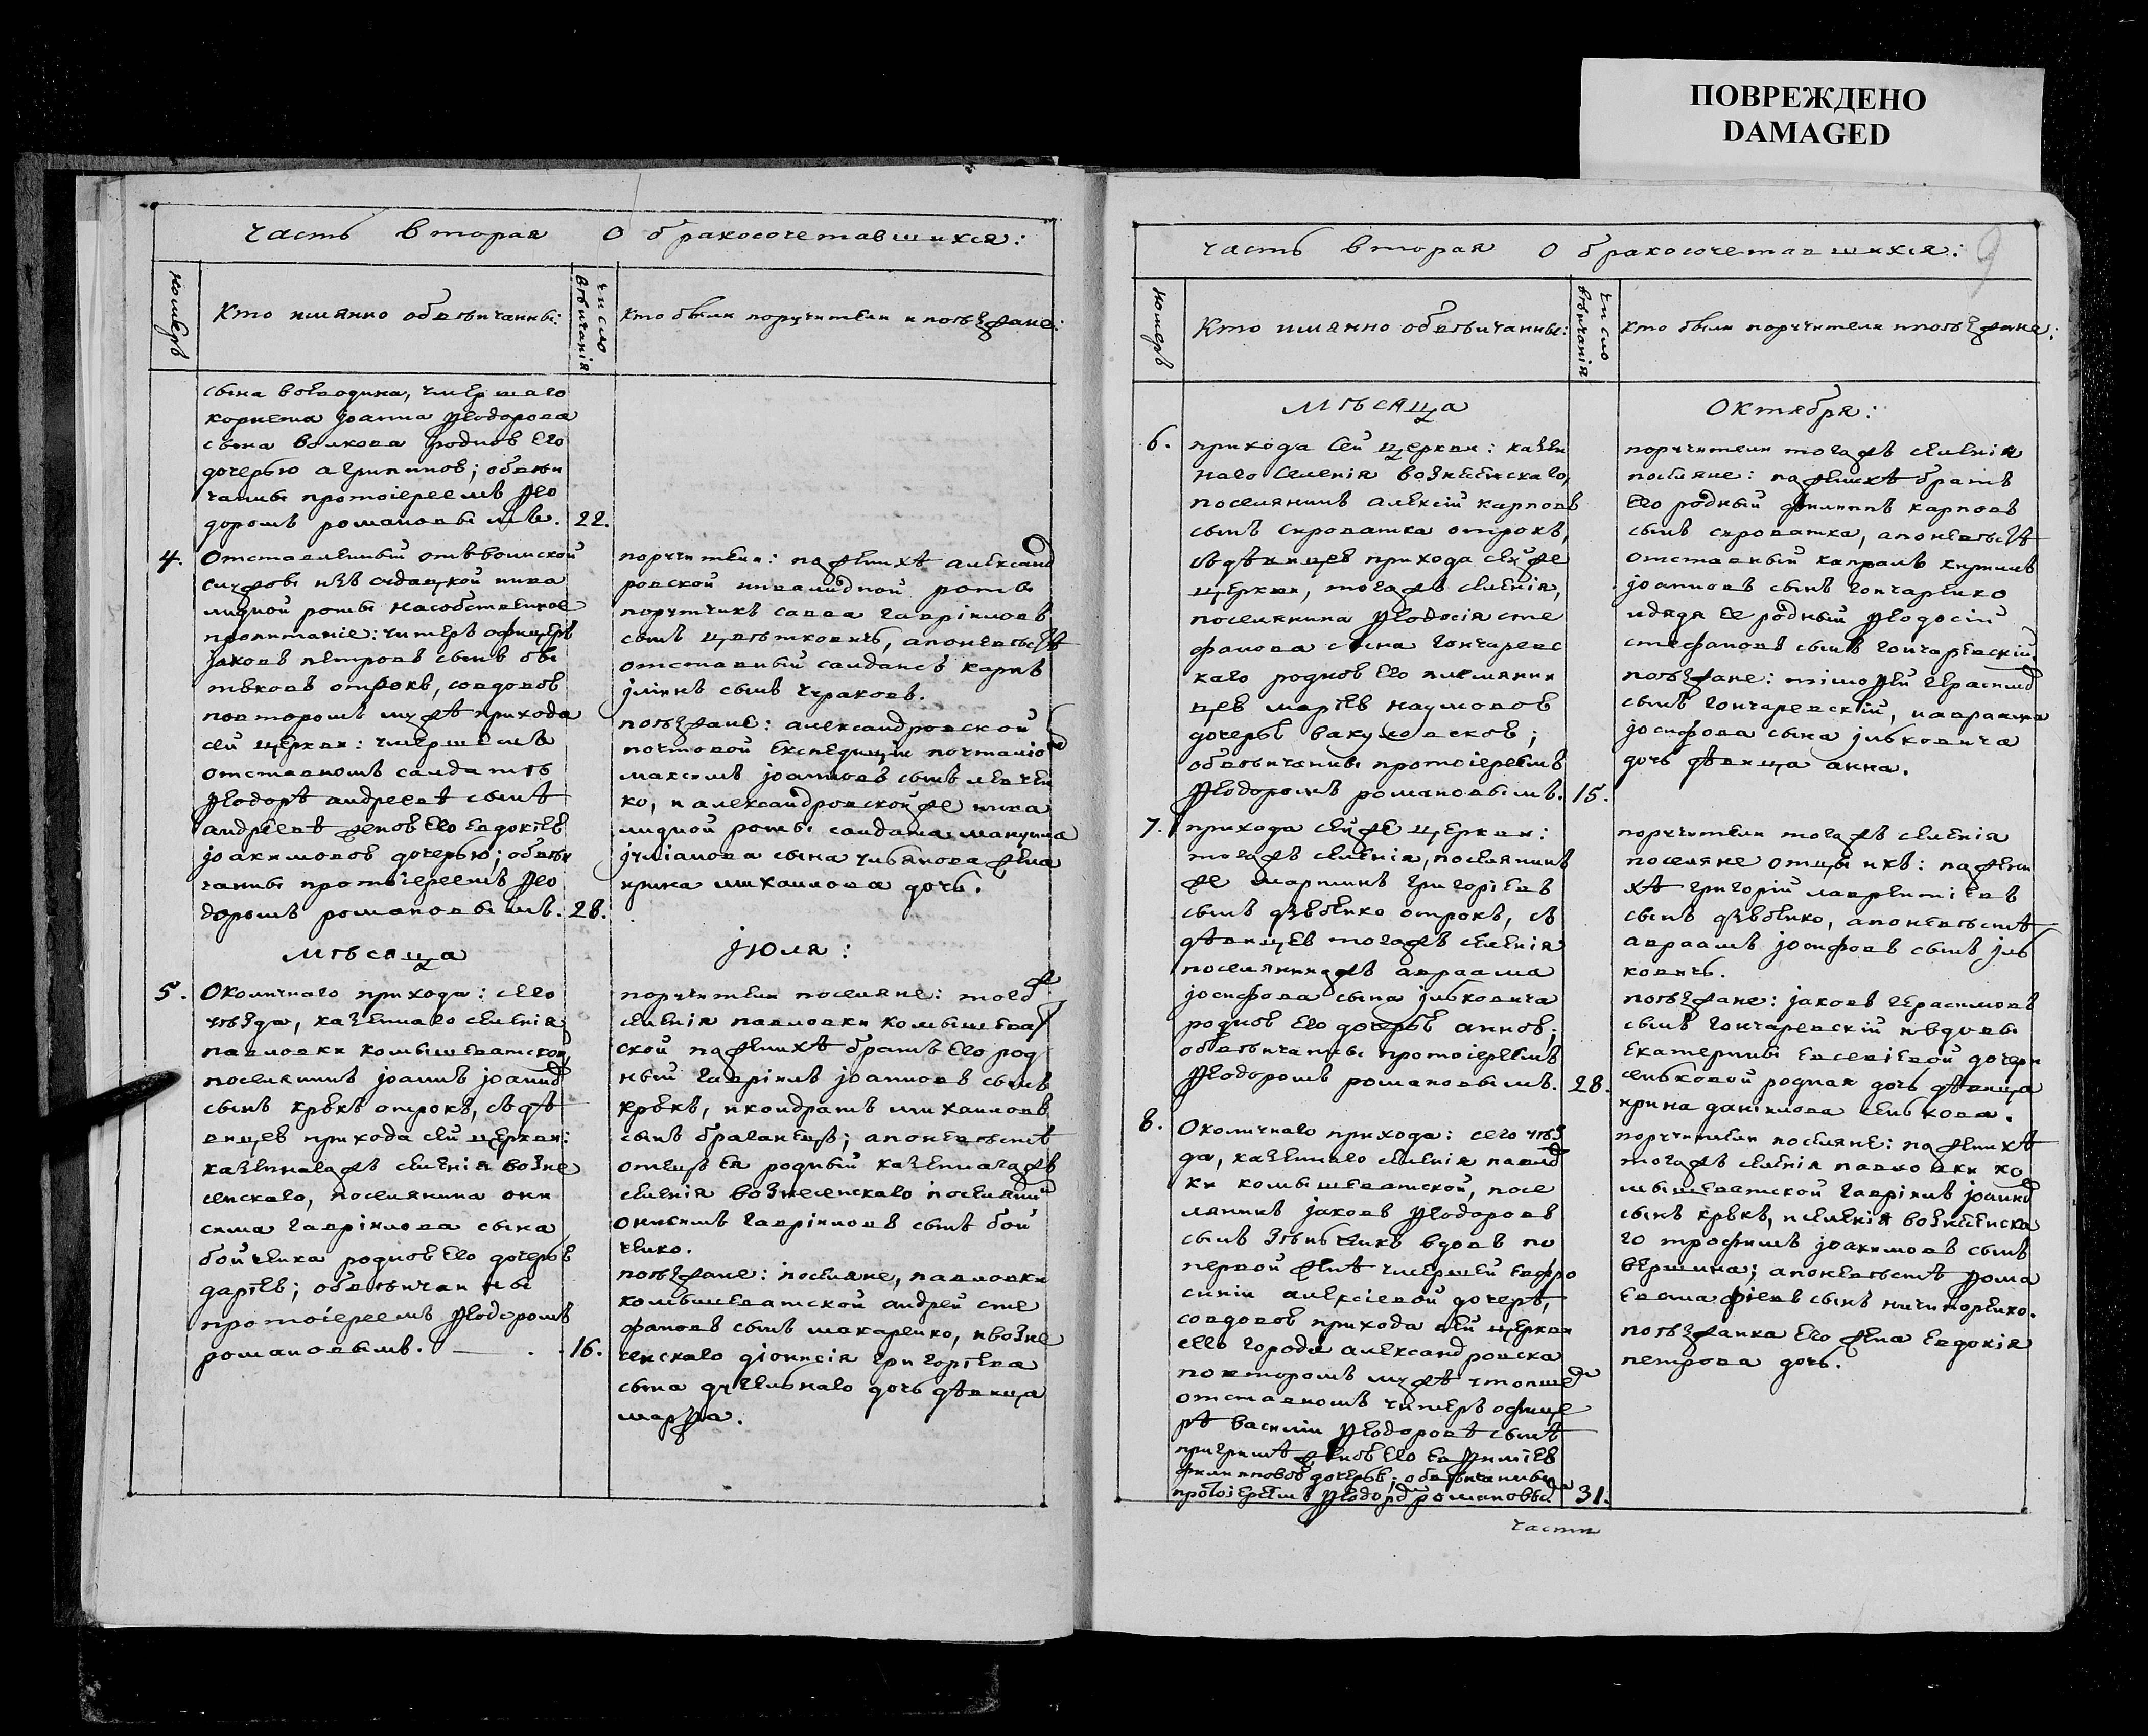 ПОВРЕЖДЕНО
DAMAGED
часть вторая о бракосочетавшихся:
номеръ
Кто имянно обвѣнчанны:
число
вѣнчанія
Кто были поручители и поѣзжане:
сына воеводина, умершаго
корнета Іоанна Ѳеодорова
сына волкова родною его
дочерью агрипиною; обвѣн
чанны протоіереемъ Ѳео
доромъ романовымъ. 22.
4. Отставленный отъ воинской
службы изъ инва
лидной роты на собственное
пропитаніе: унтеръ офицеръ
Іаковъ петровъ сынъ
отрокъ, со вдовою
по второмъ мужѣ прихода
сей церкви: умершемъ
отставномъ салдатѣ
Ѳеодорѣ андреевѣ сынѣ
андреевѣ женою его евдокіею
Іоакимовою дочерью; обвѣн
чанны протоіереемъ Ѳео
доромъ романовымъ. 28.
поручители: по женихѣ александ
ровской инвалидной роты
порутчикъ савва гавріиловъ
сынъ цвѣтковичъ, а по невѣстѣ
отставный салдатъ карпъ
Іліинъ сынъ чураковъ.
поѣзжане: александровской
почтовой експедиціи почталіонъ
максимъ Іоанновъ сынъ левчен
ко, и александровской же инва
лидной роты салдата
Іуліанова сына жена
ирина михаилова дочь.
мѣсяца Іюля:
5. Околичнаго прихода: сего
уѣзда, казеннаго селенія
павловки комышеватской,
поселянинъ Іоаннъ Іоаннов
сынъ крѣкъ отрокъ, съ дѣ
вицею прихода сей церкви:
казеннагожъ селенія возне
сенскаго, поселянина они
сима гавріилова сына
бойченка родною его дочерью
даріею; обвѣнчанны
протоіереемъ Ѳеодоромъ
романовымъ. 16.
поручители поселяне: тогож
селенія павловки комышеват
ской по женихѣ братъ его род
ный гавріилъ Іоанновъ сынъ
крѣкъ, и кондратъ михаиловъ
сынъ браганецъ; а по невѣстѣ
отецъ ея родный казеннагожъ
селенія вознесенскаго поселянин
онисимъ гавріиловъ сынъ бой
ченко.
поѣзжане: поселяне, павловки
комышеватской андрей сте
фановъ сынъ макаренко, и возне
сенскаго діонисія григоріева
сына дочь дѣвица
марѳа.
часть вторая о бракосочетавшихся: 9
номеръ
Кто имянно обвѣнчанны:
число
вѣнчанія
Кто были поручители и поѣзжане:
мѣсяца Октября:
6. прихода сей церкви: казен
наго селенія вознесенскаго,
поселянинъ алексій карповъ
сынъ сыроватка отрокъ,
съ дѣвицею прихода сей же
церкви, тогожъ селенія,
поселянина Ѳеодосія сте
фанова сына гончаревс
каго родною его племянни
цею маріею наумовою
дочерью вакуловскою;
обвѣнчанны протоіереемъ
Ѳеодоромъ романовымъ. 15.
поручители тогожъ селенія
поселяне: по женихѣ братъ
его родный филиппъ карповъ
сынъ сыроватка, а по невѣстѣ
отставный капралъ кирилъ
Іоанновъ сынъ гончаренко
и дядя ее родный Ѳеодосій
стефановъ сынъ гончаревскій.
поѣзжане: тімоѳей герасимов
сынъ гончаревскій, и авраама
Іосифова сына Ільковича
дочь дѣвица анна.
7. прихода сей же церкви:
тогожъ селенія, поселянинъ
же мартинъ григоріевъ
сынъ дзюбенко отрокъ, съ
дѣвицею тогожъ селенія
поселянинажъ авраама
Іосифова сына Ільковича
родною его дочерью анною;
обвѣнчанны протоіереемъ
Ѳеодоромъ романовымъ. 28.
поручители тогожъ селенія
поселяне отцы ихъ: по жени
хѣ григорій лаврентіевъ
сынъ дзюбенко, а по невѣстѣ
авраамъ Іосифовъ сынъ Іль
ковичъ.
поѣзжане: Іаковъ герасимовъ
сынъ гончаревскій и вдовы
екатерины евсевіевой дочери
сельковой родная дочь дѣвица
ирина даніилова селькова.
8. Околичнаго прихода: сего уѣз
да, казеннаго селенія павлов
ки комышеватской, посе
лянинъ Іаковъ Ѳеодоровъ
сынъ вдовъ по
первой женѣ умершей евфро
синіи алексіевой дочерѣ,
со вдовою прихода сей церкви
сего города александровска
по второмъ мужѣ утопшем
отставномъ унтеръ офице
рѣ василіи Ѳеодоровѣ сынѣ
женою его евѳиміею
филиповою дочерью; обвѣнчанны
протоіереемъ Ѳеодором романовым 31.
поручители поселяне: по женихѣ
тогожъ селенія павловки ко
мышеватской гавріилъ Іоанов
сынъ крѣкъ, и селенія вознесенска
го трофимъ Іоакимовъ сынъ
вершина; а по невѣстѣ Ѳома
евстафіевъ сынъ ничипоренко.
поѣзжанка его жена евдокія
петрова дочь.
части